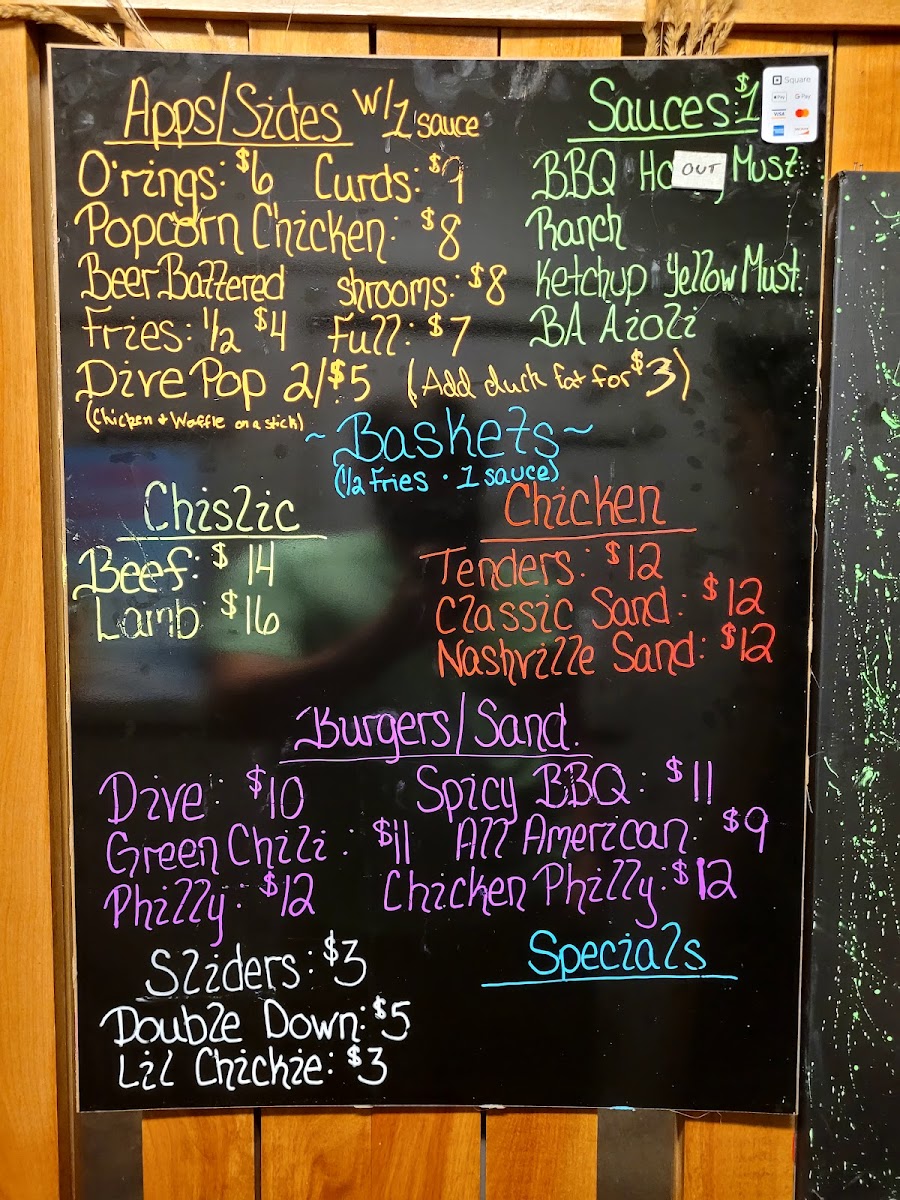 Apps/Sides w/1 sauce
O'rings: $6 Curds: $9
Popcorn Chicken: $8
Beer Battered shrooms: $8
Fries: 1/2 $4 Full: $7
Dive Pop 2/$5 (Add duck fat for $3)
(Chicken + Waffle on a stick)
Sauces: $1
Square
Pay G Pay
VISA
BBQ OUT Must.
Ranch
Ketchup Yellow Must.
BA Aioli
~Baskets~
(1/2 Fries · 1 sauce)
Chislic
Beef: $14
Lamb: $16
Chicken
Tenders: $12
Classic Sand: $12
Nashville Sand: $12
Burgers/Sand.
Dive: $10 Spicy BBQ: $11
Green Chili: $11 All American: $9
Philly: $12 Chicken Philly: $12
Sliders: $3
Double Down: $5
Lil Chickie: $3
Specials